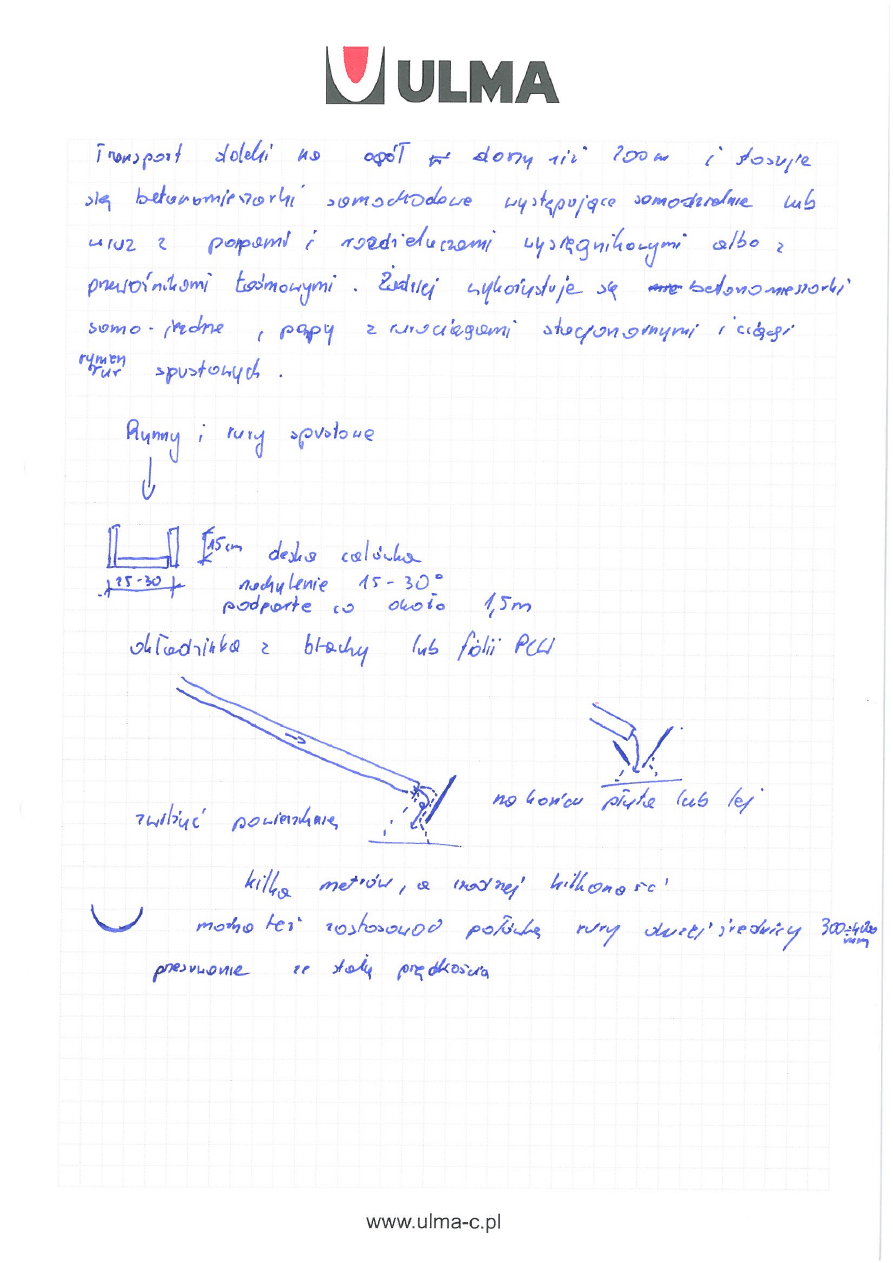 ULMA
Transport daleki na ogół w dalszy niż 200m i stosuje
się betonomieszarki samochodowe występujące samodzielnie lub
wraz z popami i rozdzielaczami wysięgnikowymi albo z
przenośnikami taśmowymi. Rzadziej wykorzystuje się betonomieszarki
samo-jezdne, papy z rurociągami stacjonarnymi i ciągi
rynien
rur spustowych.
Rynny i rury spustowe
15cm deska calówka
25-30 nachylenie 15-30°
podparte co około 1,5m
okładzinka z blachy lub folii PCW
na końcu płyta lub lej
zwilżyć powierzchnię
kilka metrów, a nośnej kilkanaść
można też zastosować połówkę rury dużej średnicy 300÷400
mm
przesuwanie ze stałą prędkością
www.ulma-c.pl